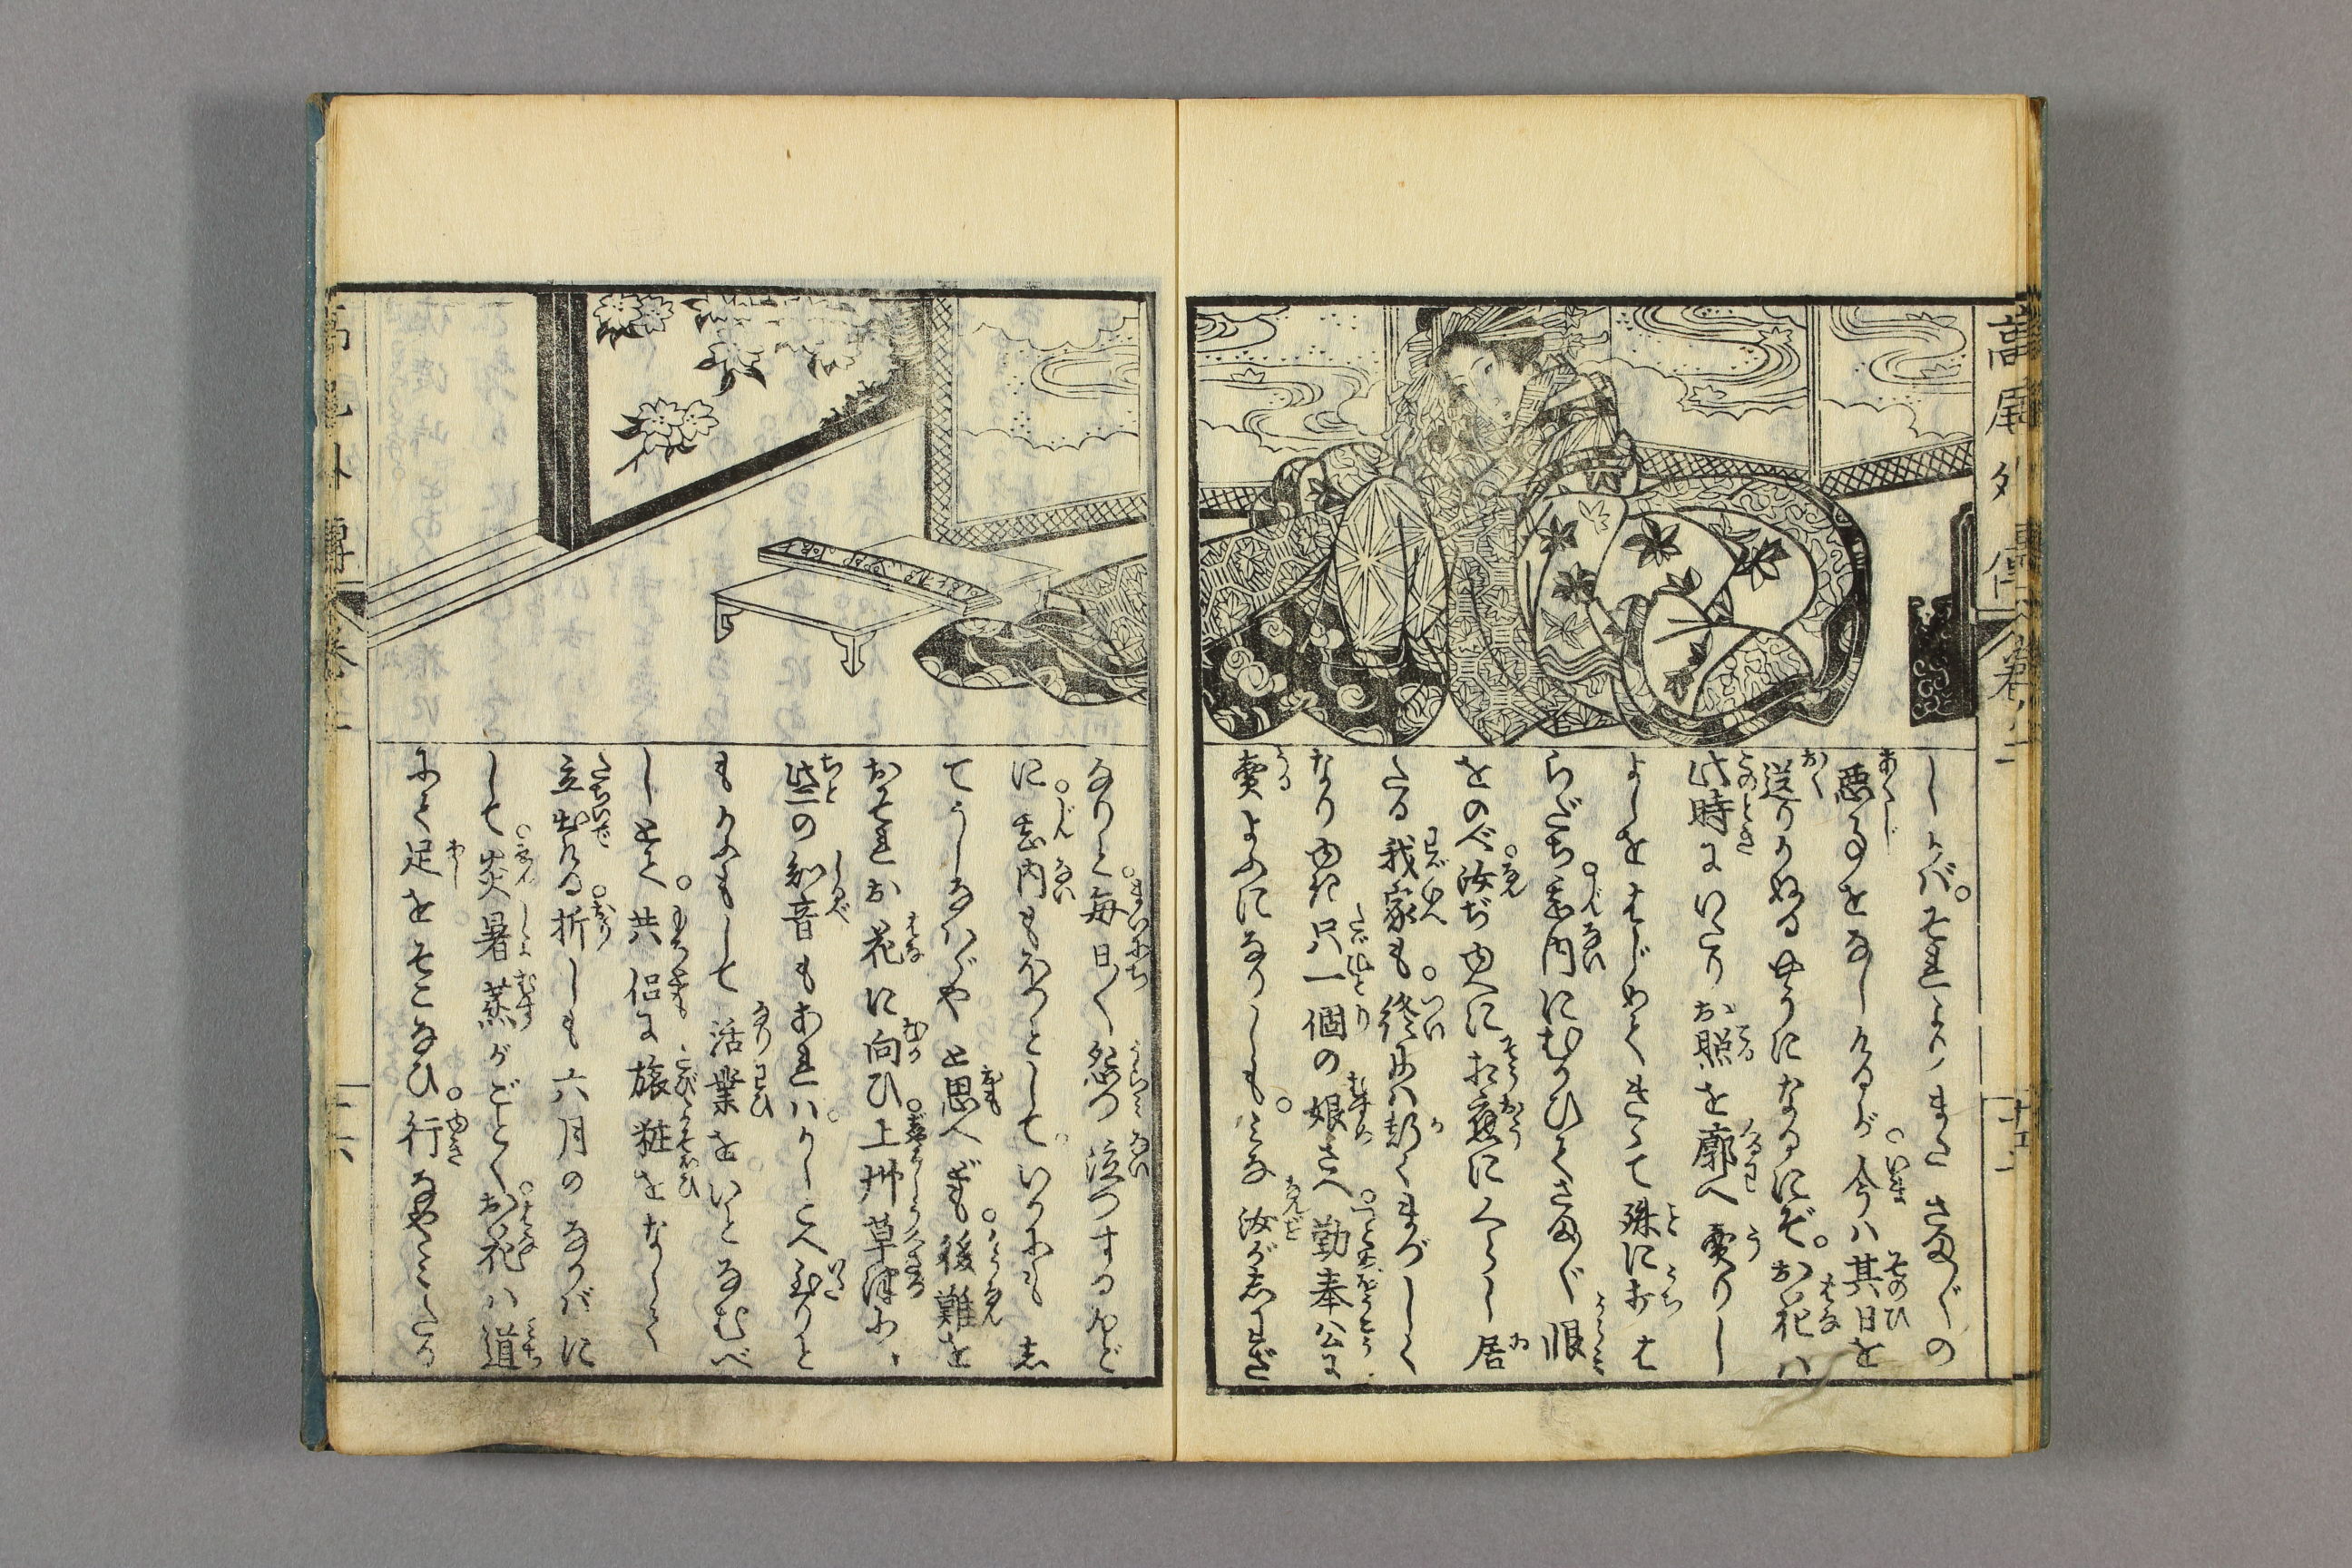 高尾外傳 卷八二 十五
しかバ。それよりまたさま〴〵の
悪事をなしけるが。今ハ其日を
送りかぬるやうになるにぞ。お花ハ
此時にいたりお照を廓へ賣りし
よしをはじめてきゝて殊におはら
だち甚内にむかひてさま〴〵恨
をのべ汝ぢゆへに相應にくらし居
たる我家も。終にハ斯くまづしく
なりゆき只一個の娘さへ勤奉公に
賣よふになりしも。みな汝がしわざ
なりと毎日〳〵怨つ泣つするほど
に。甚内もほつとして。いかにもし
てうしなハゞやと思へども。後難を
おそれお花に向ひ。上州草津に、
些の知音もあれハ。かしこへ至りと
もかふもして活業をいとなむべ
しとて。共侶に旅粧をなして
立出ける。折しも六月のなかバに
して。炎暑蒸がごとく。お花ハ道
にて足をそこなひ。行なやミたる